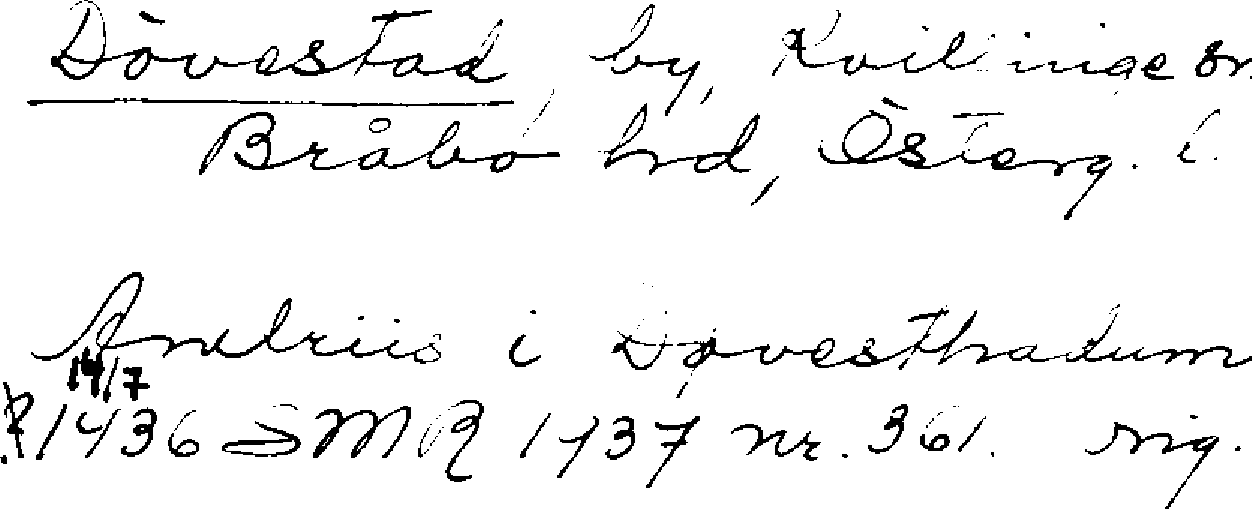 Dövestad, by, Kvillinge sn
Bråbo hrd, Österg. l.
Andriis i Døvesthadum
14/7
1436 SMR 1437 nr. 361. orig.